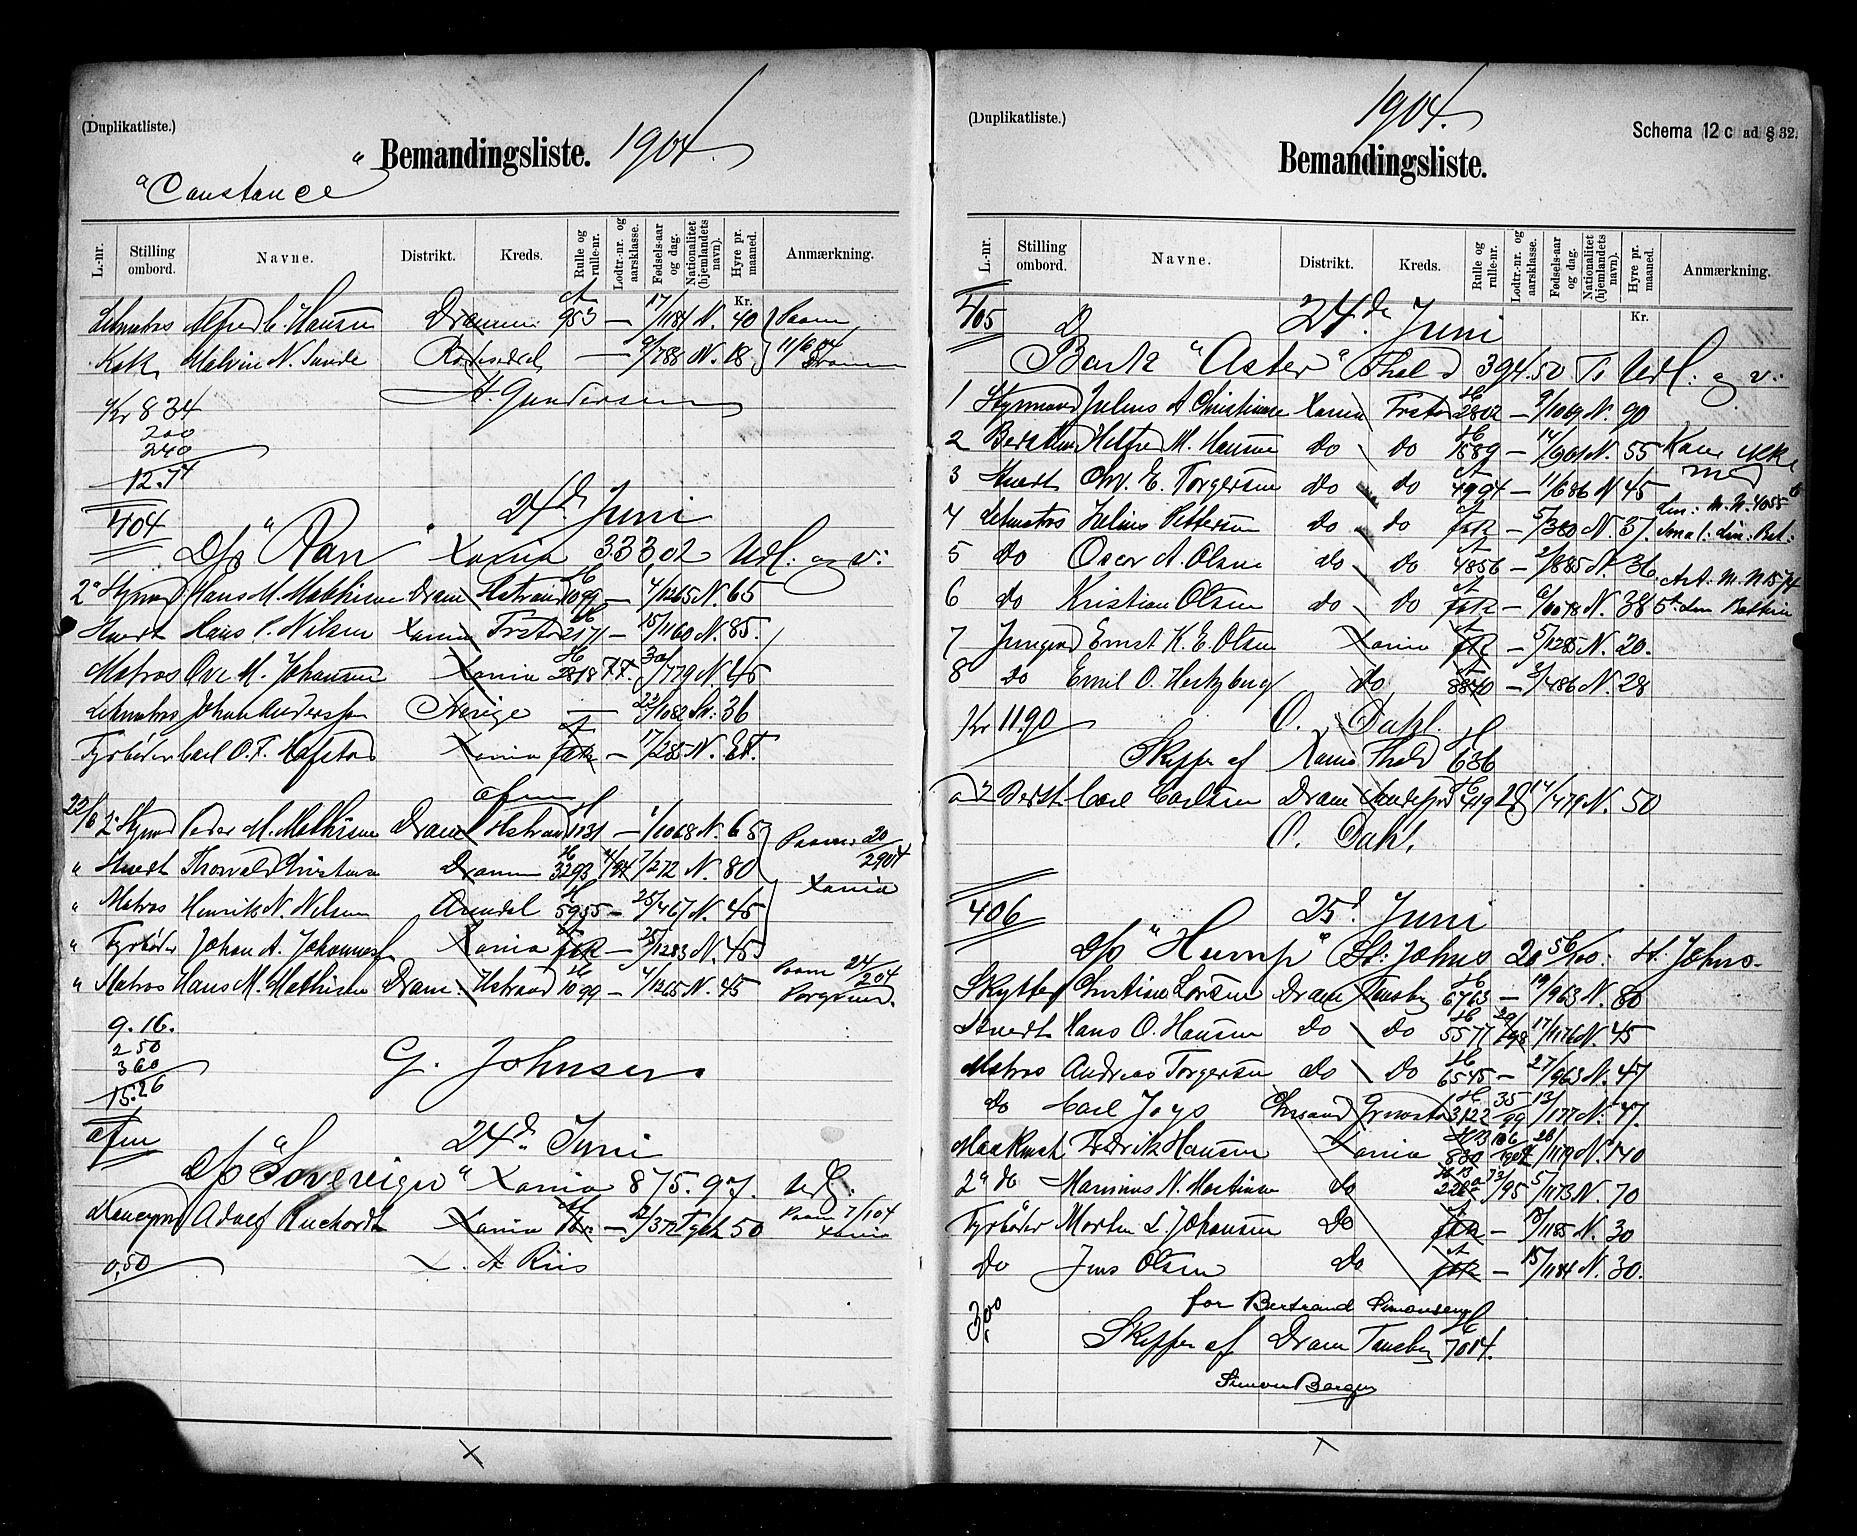 (Duplikatliste.)
Bemandingsliste. 1904.
"Constance"
L.-nr. Stilling ombord. Navne. Distrikt. Kreds. Rulle og rulle-nr. Lodtr.-nr. og aarsklasse. Fødsels-aar og dag. Nationalitet (hjemlandets navn). Hyre pr. maaned. Anmærkning.
Kr.
Letmatros Alfred C. Hansen Dramm A 953 — 17/11 84 N. 40 Paam
Kok Malvin N. Sunde — 9/7 88 N. 18 11/6 04 Dram
A. Gundersen
Kr 8 34
200
240
12.74
404 24d Juni
D/s "Ran" Xania 333,02 Udl: og v:
2d Styrmd Hans M. Mathisen Dram Hstrand H 1099 — 4/12 65 N. 65
Stuert Hans P. Nilsen Xania Frstad H 2171 — 15/11 60 N. 85.
Matros Ove M. Johansen Xania H 2818 F.F. 30/7 79 N. 45
Letmatros Johan Andersson Sverige — 22/10 82 Sv: 36
Fyrbøder Carl O. F. Hafstad Xania A fol — 17/2 85 N. Et.
afm
22/6 2d Styrmd Peder M. Mathisen Dram Hstrand H 1131 — 1/10 68 N. 65 Paam 20/2 904
" Stuert Thorvald Christensen Dramm H 3293 4/94 7/2 72 N. 80 Xania
" Matros Henrik N. Nilsen Arendal H 5955 — 25/4 67 N. 45
" Fyrbøder Johan A. Johannesen Xania fol — 25/12 83 N. 45
" Matros Hans M. Mathisen Dram. Hstrand H 1099 — 4/12 65 N. 45 Paam 24/2 04 Porsgrund.
9.16.
2 50
3 60
15.26
G. Johnsen
afm 24d Juni
D/s "Sovereign" Xania 875.97. Udl:
Adolf Xania A — 3 72 Tysk 50 Paam 7/1 04 Xania
0,50
A Riis
(Duplikatliste.)
1904.
Schema 12 c ad § 32.
Bemandingsliste.
L.-nr. Stilling ombord. Navne. Distrikt. Kreds. Rulle og rulle-nr. Lodtr.-nr. og aarsklasse. Fødsels-aar og dag. Nationalitet (hjemlandets navn). Hyre pr. maaned. Anmærkning.
Kr.
405 24de Juni
Bark "Aster" Fhald 394.50 T. Udl: og v:
1 Styrmand Julius A Christiansen Xania Frstad H 2812 — 9/10 69 N. 90
2 Bestmd M. Hansen do do H 1889 — 14/9 N. 55 Kom ikke med
3 Stuert Chr. E. Torgersen do do A 4994 — 11/6 86 N 45
4 Letmatros Julius Pettersen do do fol — 5/3 80 N. 37. Lin: M. N. 4055
5 do Oscar A. Olsen do do A 4856 — 2/8 85 N. 36
6 do Kristian Olsen do do fol — 6/10 78 N. 38 Art: M. N 1574 5te Lin Bat
7 Jungmd Ernst K. E. Olsen Xania fol — 5/12 85 N. 20.
8 do Emil O. Hertzberg do A 8840 — 2/4 86 N. 28
Kr 11.90 O. Dahl.
Skipper af Xania Fhald H 636
ad 2 Berstm Carl Carlsen Dram Sandefjord H 419 14/4 79 N. 50
O. Dahl.
406 25d Juni
D/s "Hump" St: Johns 20 56/100. St. Johns.
Skytter Christian Larsen Dram Tønsby H 6763 — 19/9 63 N. 80
Stuert Hans O. Hansen do do H 5577 20/98 17/11 76 N. 45
Matros Andreas Torgersen do do H 6545 — 27/9 63 N. 47
do Carl Joys Chrsand Grimstad H 3122 35/99 13/1 77 N. 47.
Maskmst Fredrik Hansen Xania 830 106/1902 26/11 79 N. 140
2d do Marinius N. Martinsen do /95 5/11 73 N. 70
Fyrbøder Morten L. Johansen do A fol — 8/11 85 N. 30
do Jens Olsen do A fol — 15/11 84 N. 30.
3,00 for Bertrand Simonsen
Skipper af Dram Tønsby H 7014.
Simon Berger